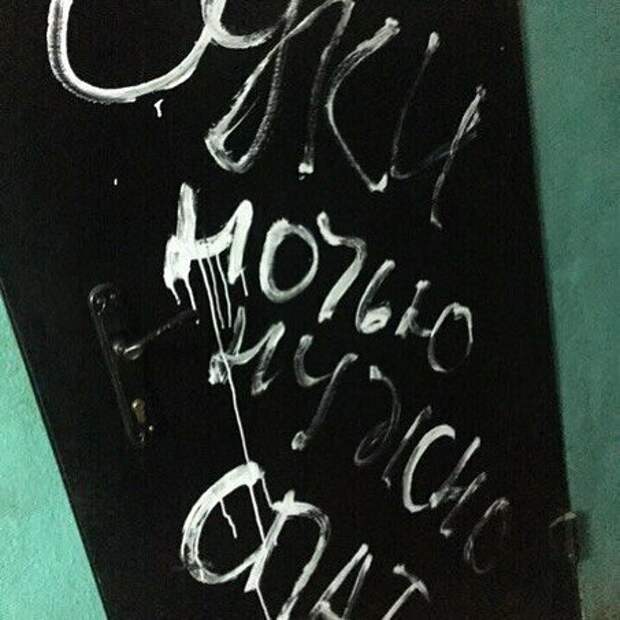 Суки
ночью
нужно
спат